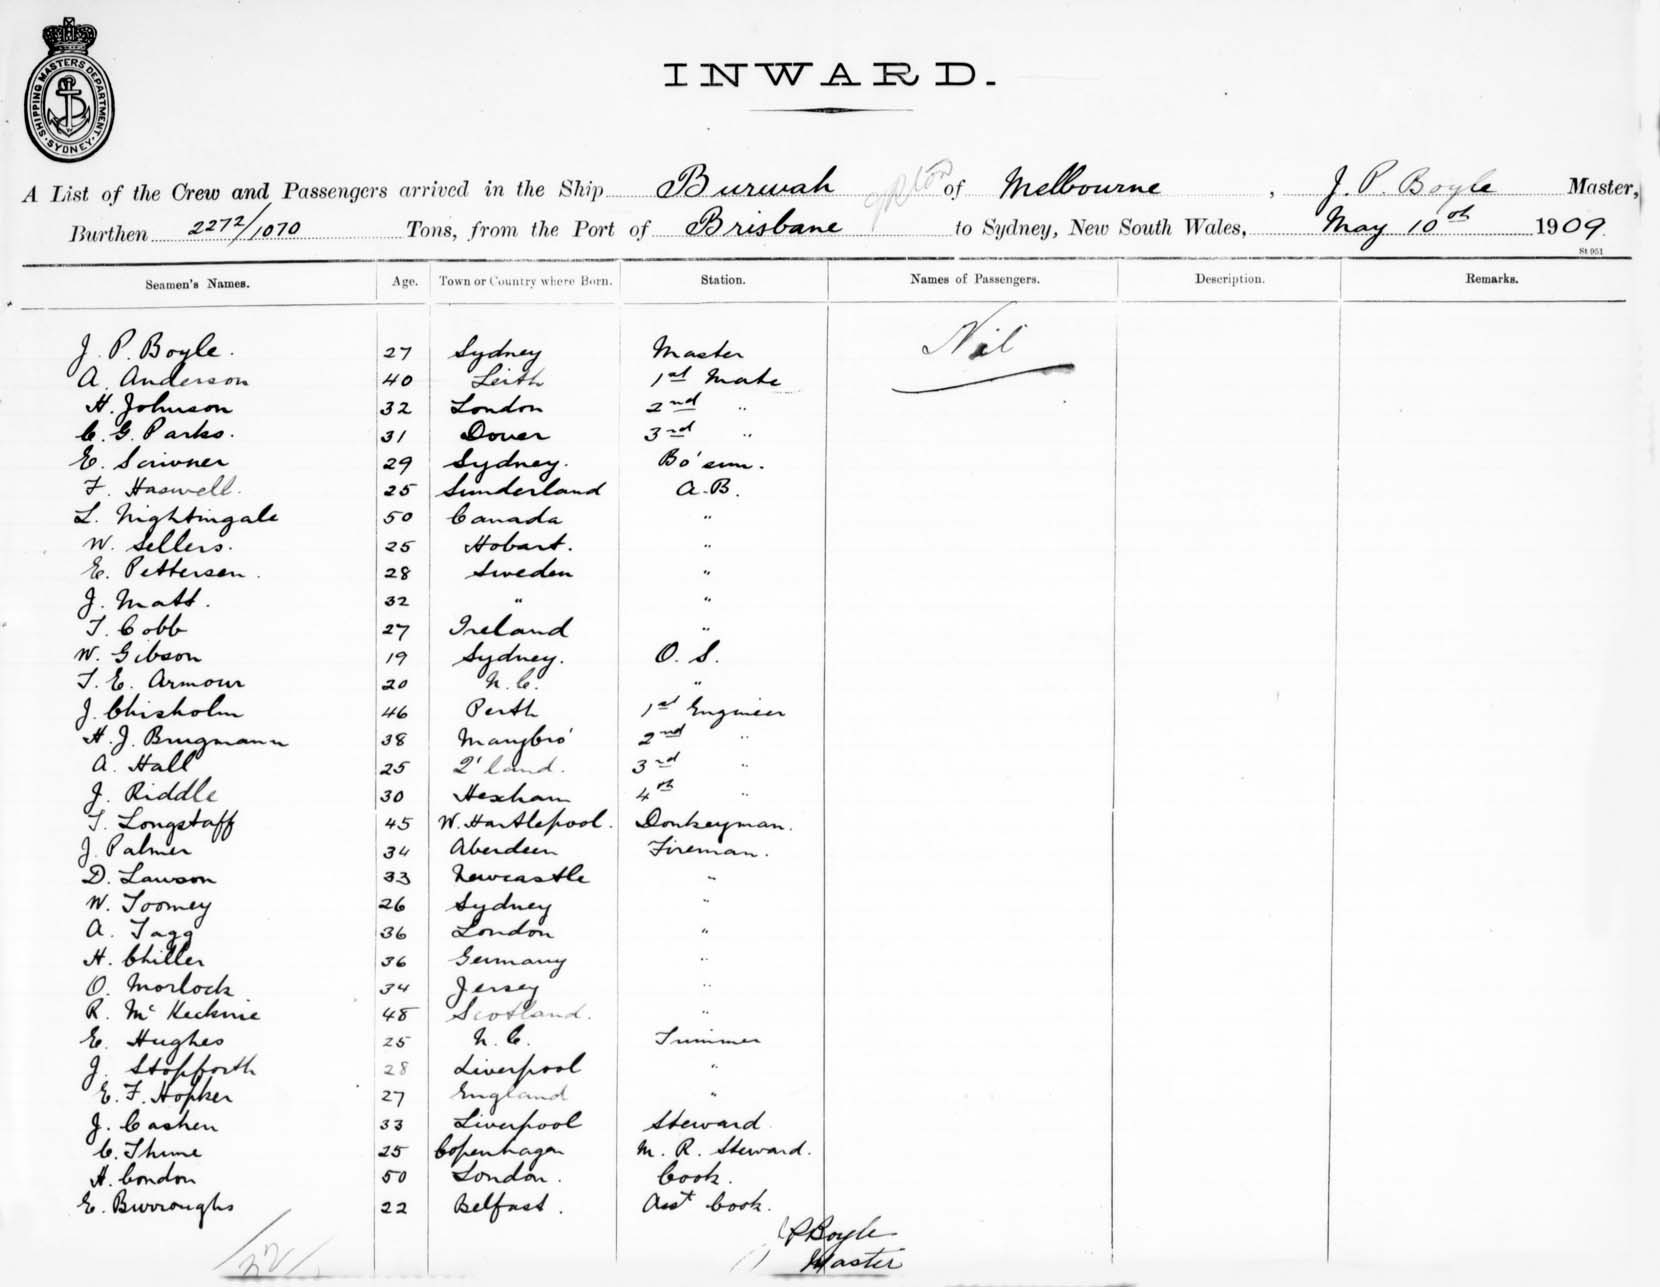 SHIPPING MASTERS DEPARTMENT. SYDNEY.
INWARD.
A List of the Crew and Passengers arrived in the Ship Burwah of Melbourne, J. P. Boyle Master,
Burthen 2272/1070 Tons, from the Port of Brisbane to Sydney, New South Wales, May 10th 1909
St 951
Seamen's Names. Age. Town or Country where Born. Station. Names of Passengers. Description. Remarks.
J. P. Boyle. 27 Sydney Master Nil
A. Anderson 40 Leith 1st Mate
H. Johnson 32 London 2nd "
C. G. Parks. 31 Dover 3rd "
E. Scrivner 29 Sydney. Bo'sun.
F. Haswell. 25 Sunderland A.B.
L. Nightingale 50 Canada "
W. Sellers. 25 Hobart. "
E. Pettersen. 28 Sweden "
J. Matt. 32 " "
T. Cobb 27 Ireland "
W. Gibson 19 Sydney. O. S.
T. E. Armour 20 N.C. "
J. Chisholm 46 Perth 1st Engineer
H. J. Brugmann 38 Marybro' 2nd "
A. Hall 25 Q'land. 3rd "
J. Riddle 30 Hexham 4th "
T. Longstaff 45 W. Hartlepool. Donkeyman.
J. Palmer 34 Aberdeen Fireman.
D. Lawson 33 Newcastle "
W. Toomey 26 Sydney "
A. Tagg 36 London "
H. Chiller 36 Germany "
O. Morlock 34 Jersey "
R. McKechnie 48 Scotland. "
E. Hughes 25 N.C. Trimmer
J. Stopforth 28 Liverpool "
E. F. Hopker 27 England "
J. Cashen 33 Liverpool Steward
C. Thune 25 Copenhagen M. R. Steward.
H. Condon 50 London. Cook.
E. Burroughs 22 Belfast. Asst Cook.
JPBoyle
32
Master